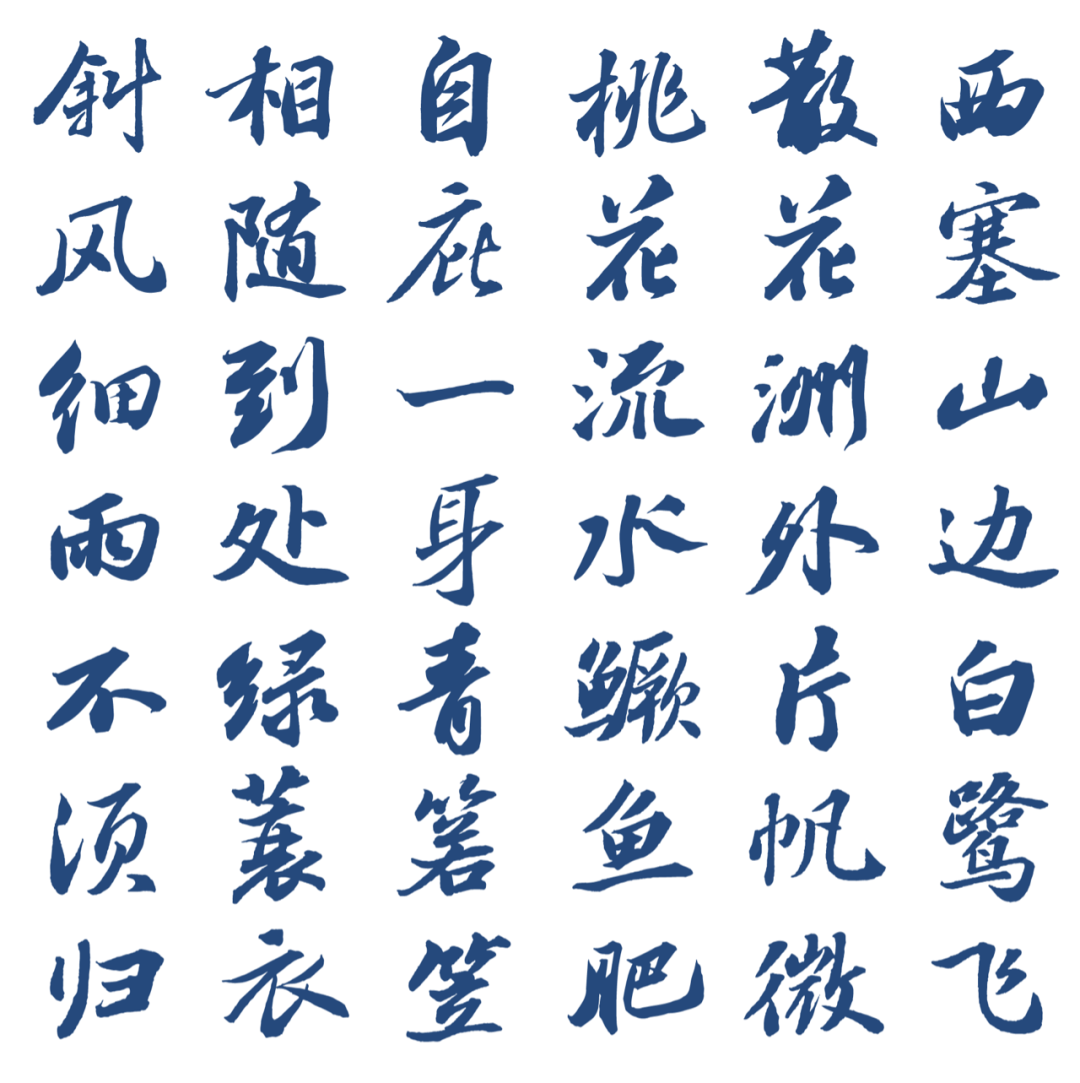 西塞山边白鹭飞
散花洲外片帆微
桃花流水鳜鱼肥
自庇一身青箬笠
相随到处绿蓑衣
斜风细雨不须归